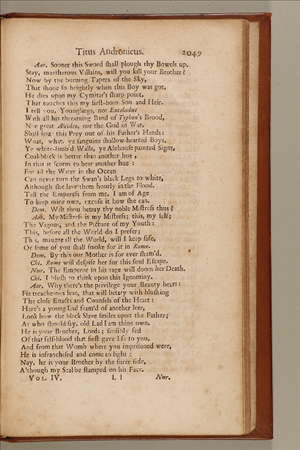 Titus Andronicus. 2049
Aar. Sooner this Sword shall plough thy Bowels up.
Stay, murtherous Villains, will you kill your Brother?
Now by the burning Tapers of the Sky,
That shone so brightly when this Boy was got,
He dies upon my Cymitar's sharp point,
That touches this my first-born Son and Heir.
I tell you, Younglings, not Enceladus
With all his threatning Band of Typhon's Brood,
Nor great Alcides, nor the God of War,
Shall seize this Prey out of his Father's Hands:
What, what, ye sanguine shallow-hearted Boys,
Ye white-limb'd Walls, ye Alehouse painted Signs,
Coal-black is better than another hue,
In that it scorns to bear another hue:
For all the Water in the Ocean
Can never turn the Swan's black Legs to white,
Although she lave them hourly in the Flood.
Tell the Emperess from me, I am of Age
To keep mine own, excuse it how she can.
Dem. Wilt thou betray thy noble Mistress thus?
Aar. My Mistress is my Mistress; this, my self;
The Vigour, and the Picture of my Youth:
This, before all the World do I prefer;
This, maugre all the World, will I keep safe,
Or some of you shall smoke for it in Rome.
Dem. By this our Mother is for ever sham'd.
Chi. Rome will despise her for this foul Escape.
Nur. The Emperor in his rage will doom her Death.
Chi. I blush to think upon this Ignominy.
Aar. Why there's the privilege your Beauty bears:
Fie treacherous hue, that will betray with blushing
The close Enacts and Counsels of the Heart:
Here's a young Lad fram'd of another leer,
Look how the black Slave smiles upon the Father;
As who should say, old Lad I am thine own.
He is your Brother, Lords; sensibly fed
Of that self-blood that first gave life to you,
And from that Womb where you imprisoned were,
He is infranchised and come to light:
Nay, he is your Brother by the surer side,
Although my Seal be stamped on his Face.
VOL. IV. L l Nur.